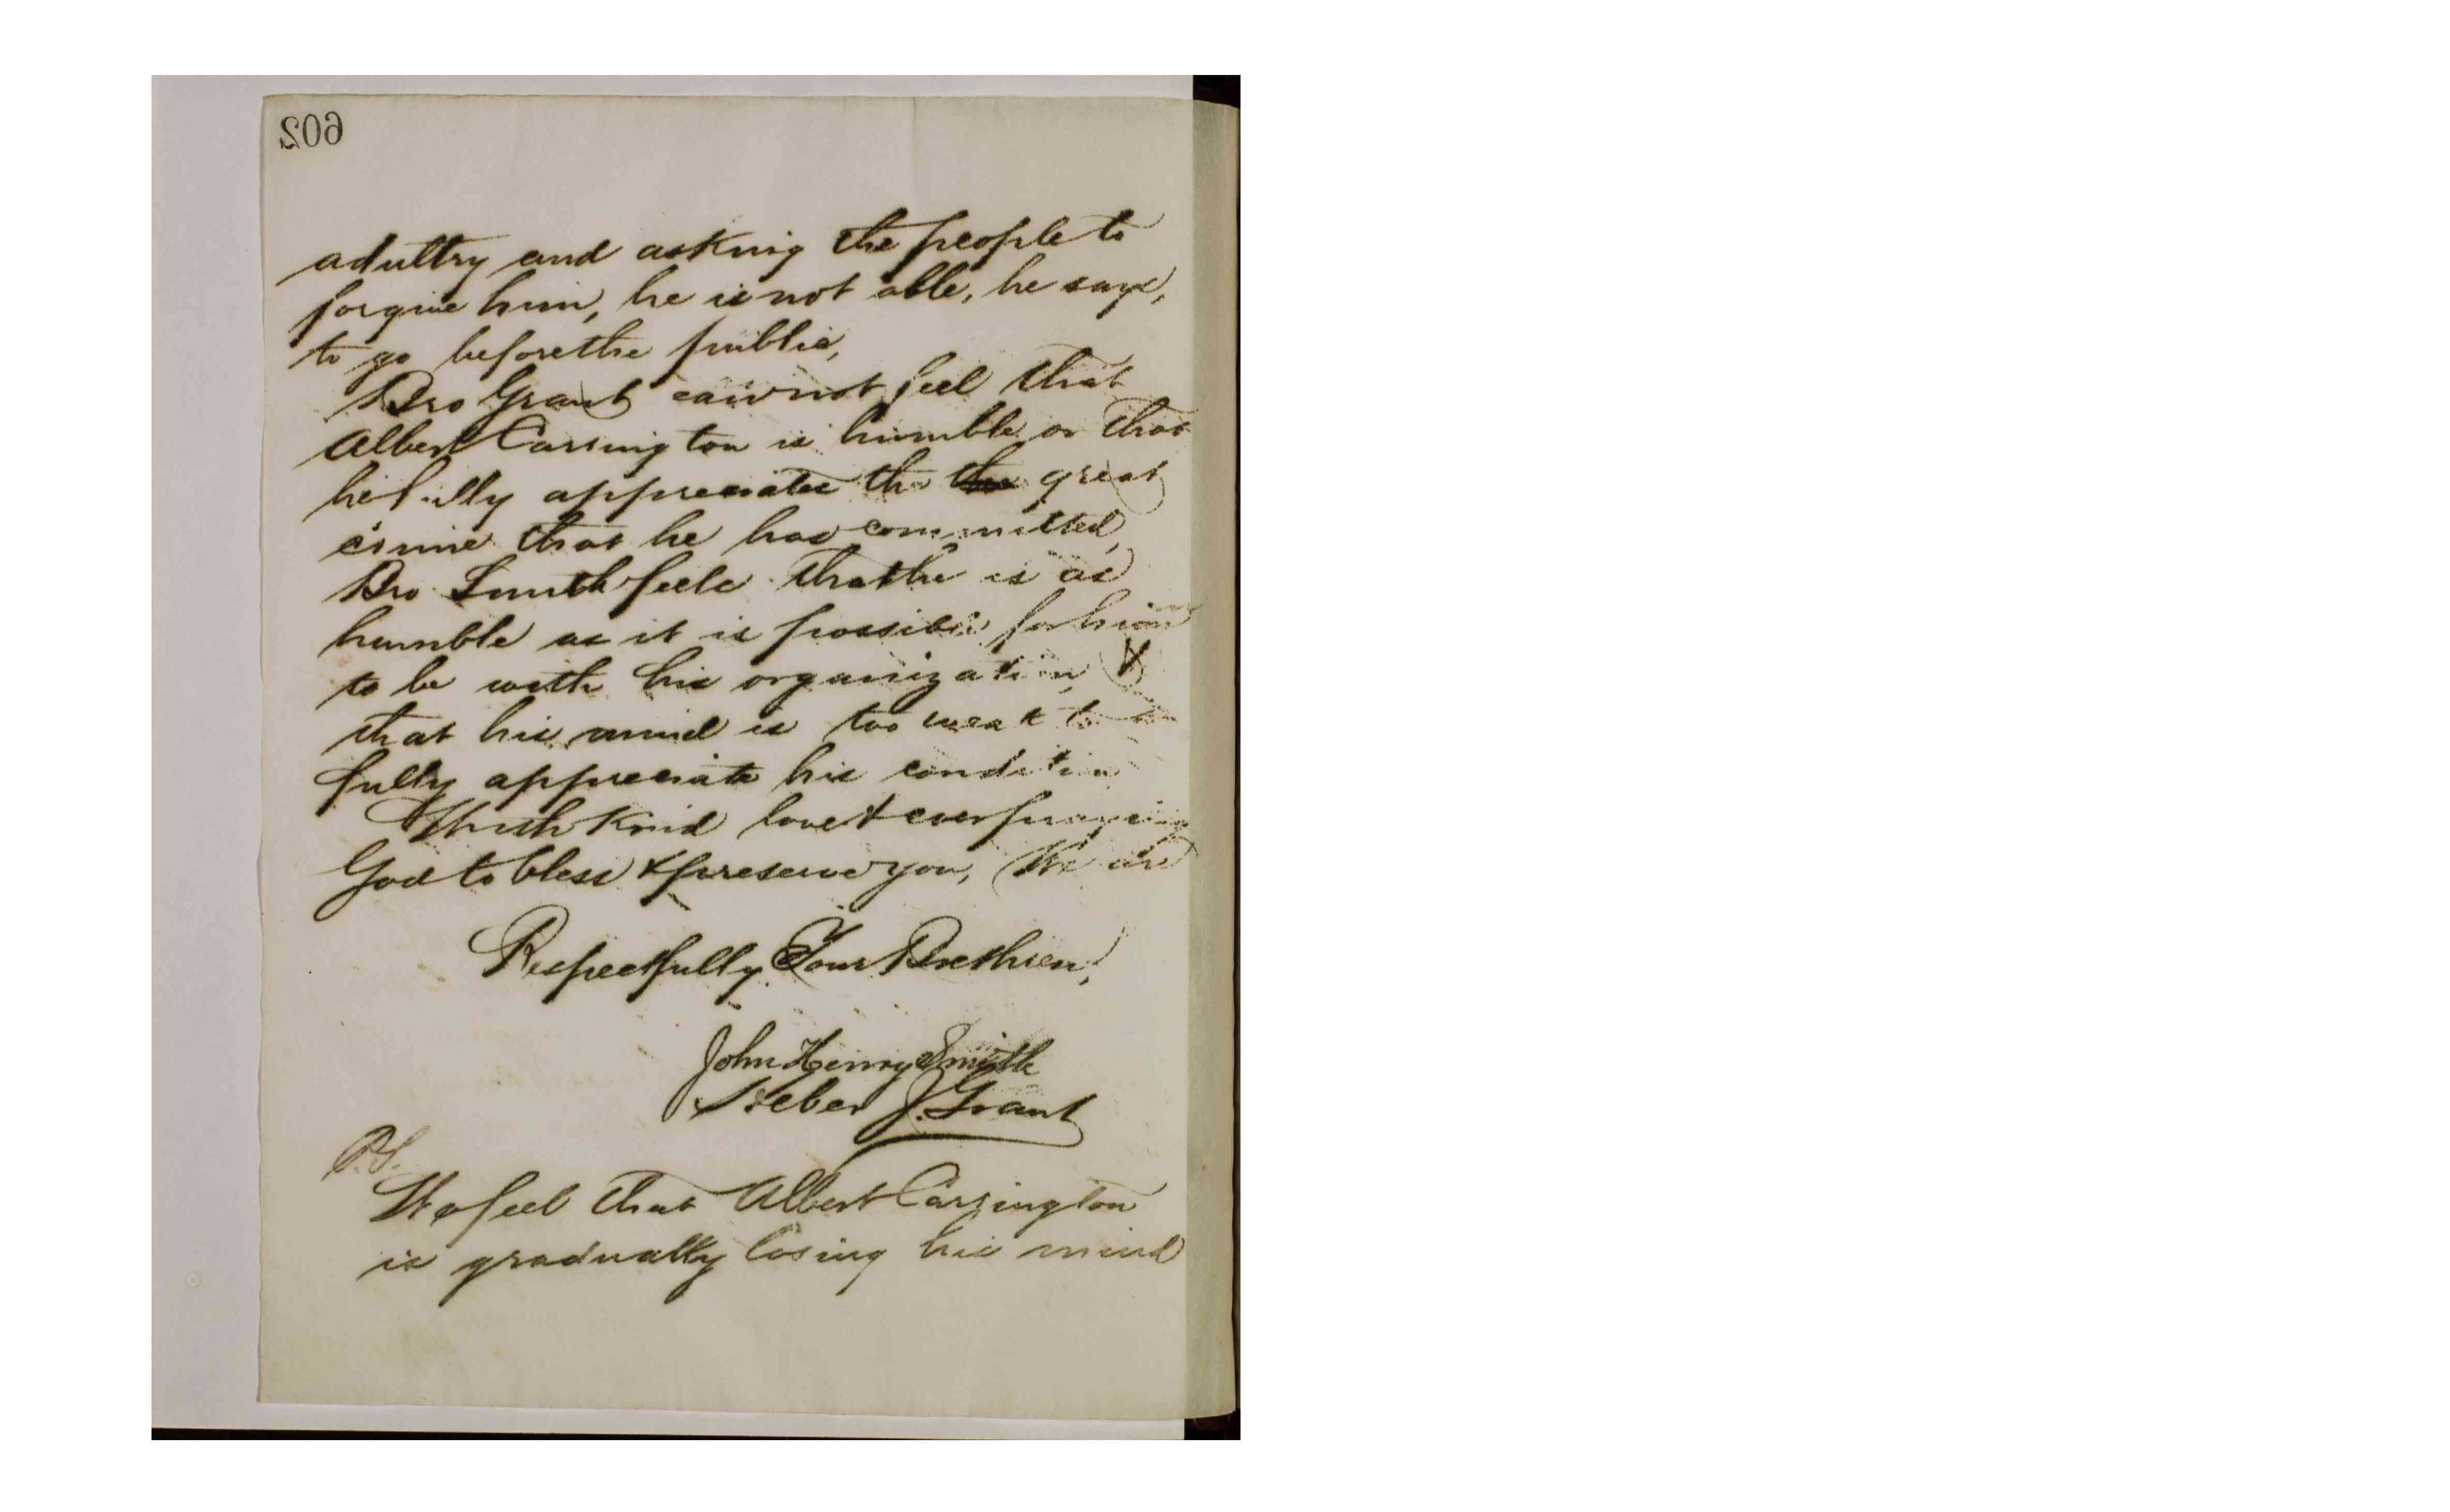 602
adultry and asking the people to
forgive him, he is not able, he says,
to go before the public,
Bro Grant can not feel that
Albert Carrington is humble or that
he fully appreciates the the great
crime that he has committed,
Bro Smith feels that he is as
humble as it is possible for him
to be with his organization, &
that his mind is too weak to
fully appreciate his condition
With kind love & ever praying
God to bless & preserve you, We are
Respectfully Your Brethren,
John Henry Smith
Heber J. Grant
P.S.
We feel that Albert Carrington
is gradually losing his mind